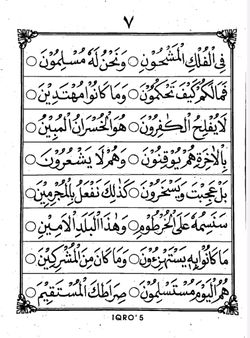 ٧
فِى الْفُلْكِ الْمَشْحُوْنِ ○ وَنَحْنُ لَهُ مُسْلِمُوْنَ ○
فَمَالَكُمْ كَيْفَ تَحْكُمُوْنَ ○ وَمَا كَانُوْا مُهْتَدِيْنَ ○
لَايُفْلِحُ الْكٰفِرُوْنَ ○ هُوَ الْخُسْرَانُ الْمُبِيْنُ ○
بِالْاٰخِرَةِ هُمْ يُوْقِنُوْنَ ○ وَهُمْ لَا يَشْعُرُوْنَ ○
بَلْ عَجِبْتَ وَيَسْخَرُوْنَ ○ كَذٰلِكَ نَفْعَلُ بِالْمُجْرِمِيْنَ ○
سَنَسِمُهُ عَلَى الْخُرْطُوْمِ ○ وَهٰذَا الْبَلَدِ الْاَمِيْنِ ○
مَا كَانُوْا بِهِ يَسْتَهْزِءُوْنَ ○ وَمَا كَانَ مِنَ الْمُشْرِكِيْنَ ○
هُمُ الْيَوْمَ مُسْتَسْلِمُوْنَ ○ صِرَاطَكَ الْمُسْتَقِيْمَ ○
IQRO' 5